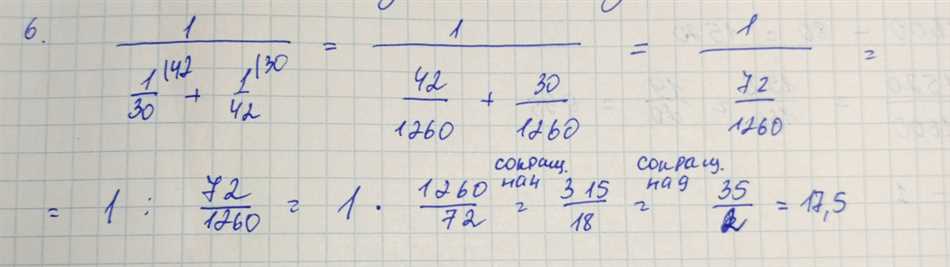 6. 1 / (1/30 |42 + 1/42 |30) = 1 / (42/1260 + 30/1260) = 1 / (72/1260) =
= 1 : 72/1260 = 1 · 1260/72 = сокращ. на 4 315/18 = сокращ. на 9 35/2 = 17,5